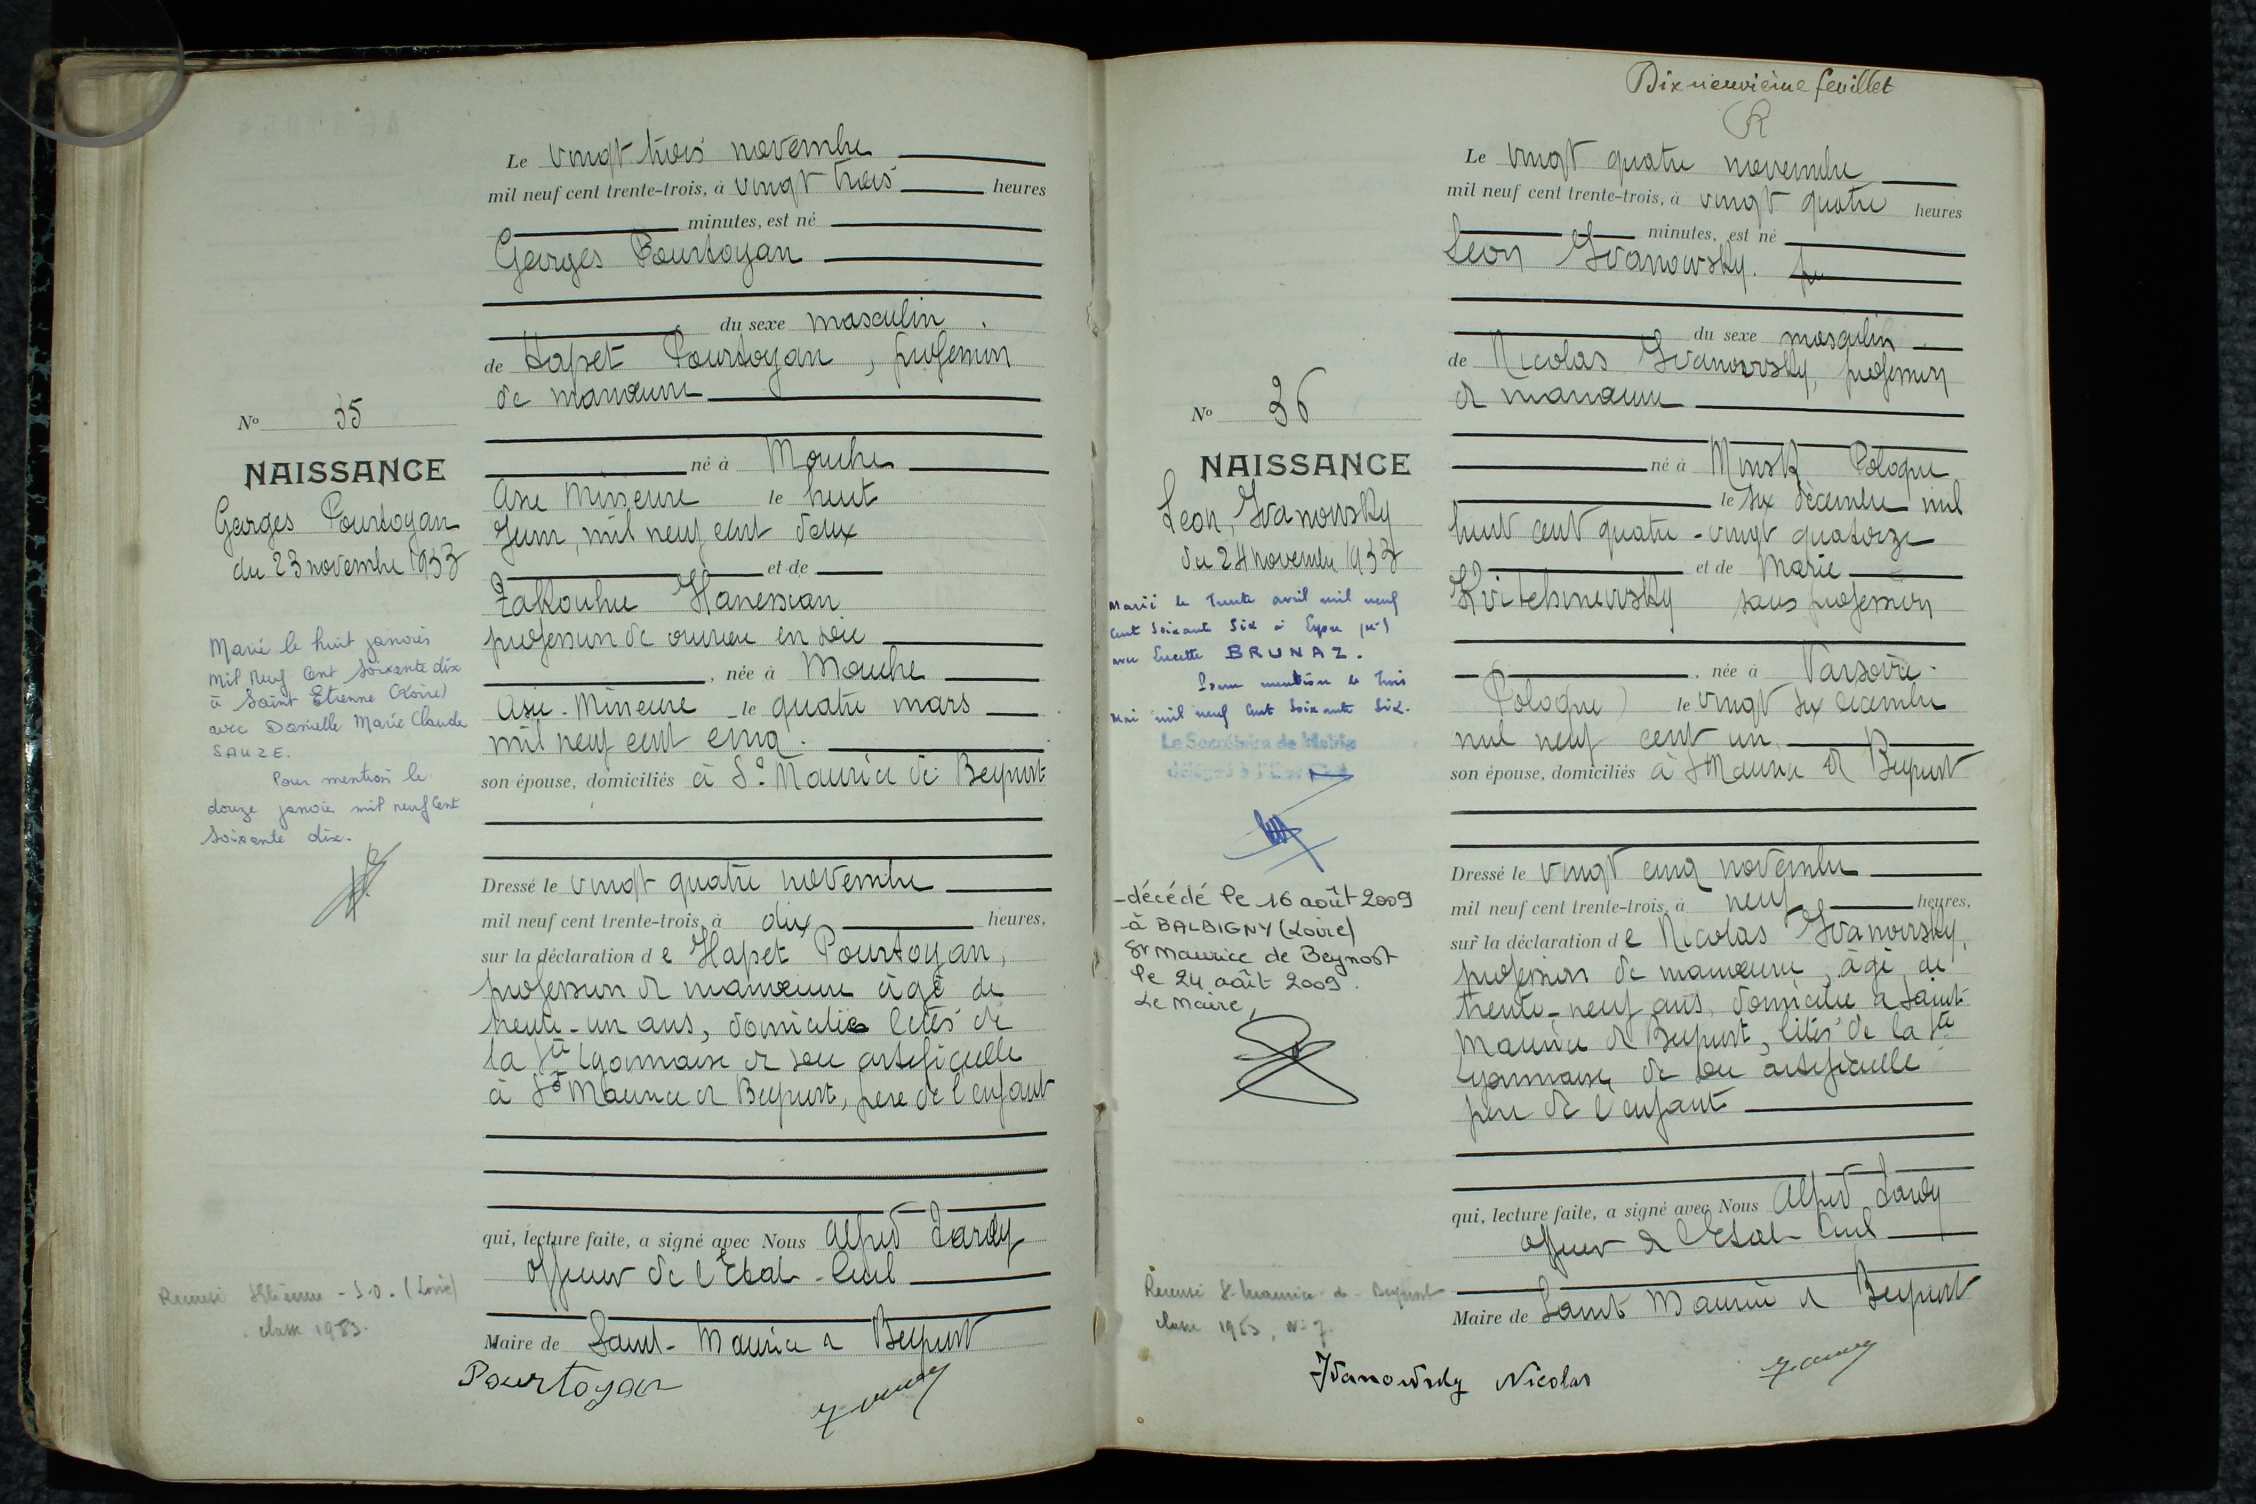 Le vingt trois novembre
mil neuf cent trente-trois, à vingt trois heures
minutes, est né
Georges Pourtoyan
du sexe masculin
de Hapet Pourtoyan, profession
de manœuvre
né à Mouche
Asie Mineure le huit
Juin, mil neuf cent deux
et de
Zakouhie Hanessian
profession de ouvrière en soie
, née à Mouche
Asie-Mineure le quatre mars
mil neuf cent cinq.
son épouse, domiciliés à St Maurice de Beynost
Dressé le vingt quatre novembre
mil neuf cent trente-trois, à dix heures,
sur la déclaration de Hapet Pourtoyan,
profession de manœuvre âgé de
trente-un ans, domicilié cités de
la Sté Lyonnaise de soie artificielle
à St Maurice de Beynost, père de l'enfant
qui, lecture faite, a signé avec Nous Alfred
officier de l'Etat-Civil
Maire de Saint-Maurice de Beynost
Pourtoyan
No 35
NAISSANCE
Georges Pourtoyan
du 23 novembre 1933
Marié le huit janvier
mil neuf cent soixante dix
à Saint Etienne (Loire)
avec Danielle Marie Claude
SAUZE.
Pour mention le
douze janvier mil neuf cent
soixante dix.
Recensé St Etienne - S.O. (Loire)
classe 1953.
Dix neuvième feuillet
Le vingt quatre novembre
mil neuf cent trente-trois, à vingt quatre heures
minutes, est né
Leon Ivanowsky.
du sexe masculin
de Nicolas Ivanowsky, profession
de manœuvre
né à Minsk Pologne
le six décembre mil
huit cent quatre-vingt quatorze
et de Marie
sans profession
, née à Varsovie
(Pologne) le vingt six décembre
mil neuf cent un.
son épouse, domiciliés à St Maurice de Beynost
Dressé le vingt cinq novembre
mil neuf cent trente-trois, à neuf heures,
sur la déclaration de Nicolas Ivanowsky,
profession de manœuvre, âgé de
trente-neuf ans, domicilié à Saint-
Maurice de Beynost, cités de la Sté
Lyonnaise de soie artificielle
père de l'enfant
qui, lecture faite, a signé avec Nous Alfred
officier de l'Etat-Civil
Maire de Saint Maurice de Beynost
Ivanowsky Nicolas
No 36
NAISSANCE
Leon, Ivanowsky
du 24 novembre 1933
Marié le trente avril mil neuf
cent soixante six à Lyon
avec Lucette BRUNAZ.
Pour mention le trois
Mai mil neuf cent soixante six.
Le Secrétaire de Mairie
délégué à l'Etat Civil
-décédé le 16 août 2009
à BALBIGNY (Loire)
St Maurice de Beynost
le 24 août 2009.
Le Maire,
Recensé St Maurice de Beynost
classe 1953, N° 7.